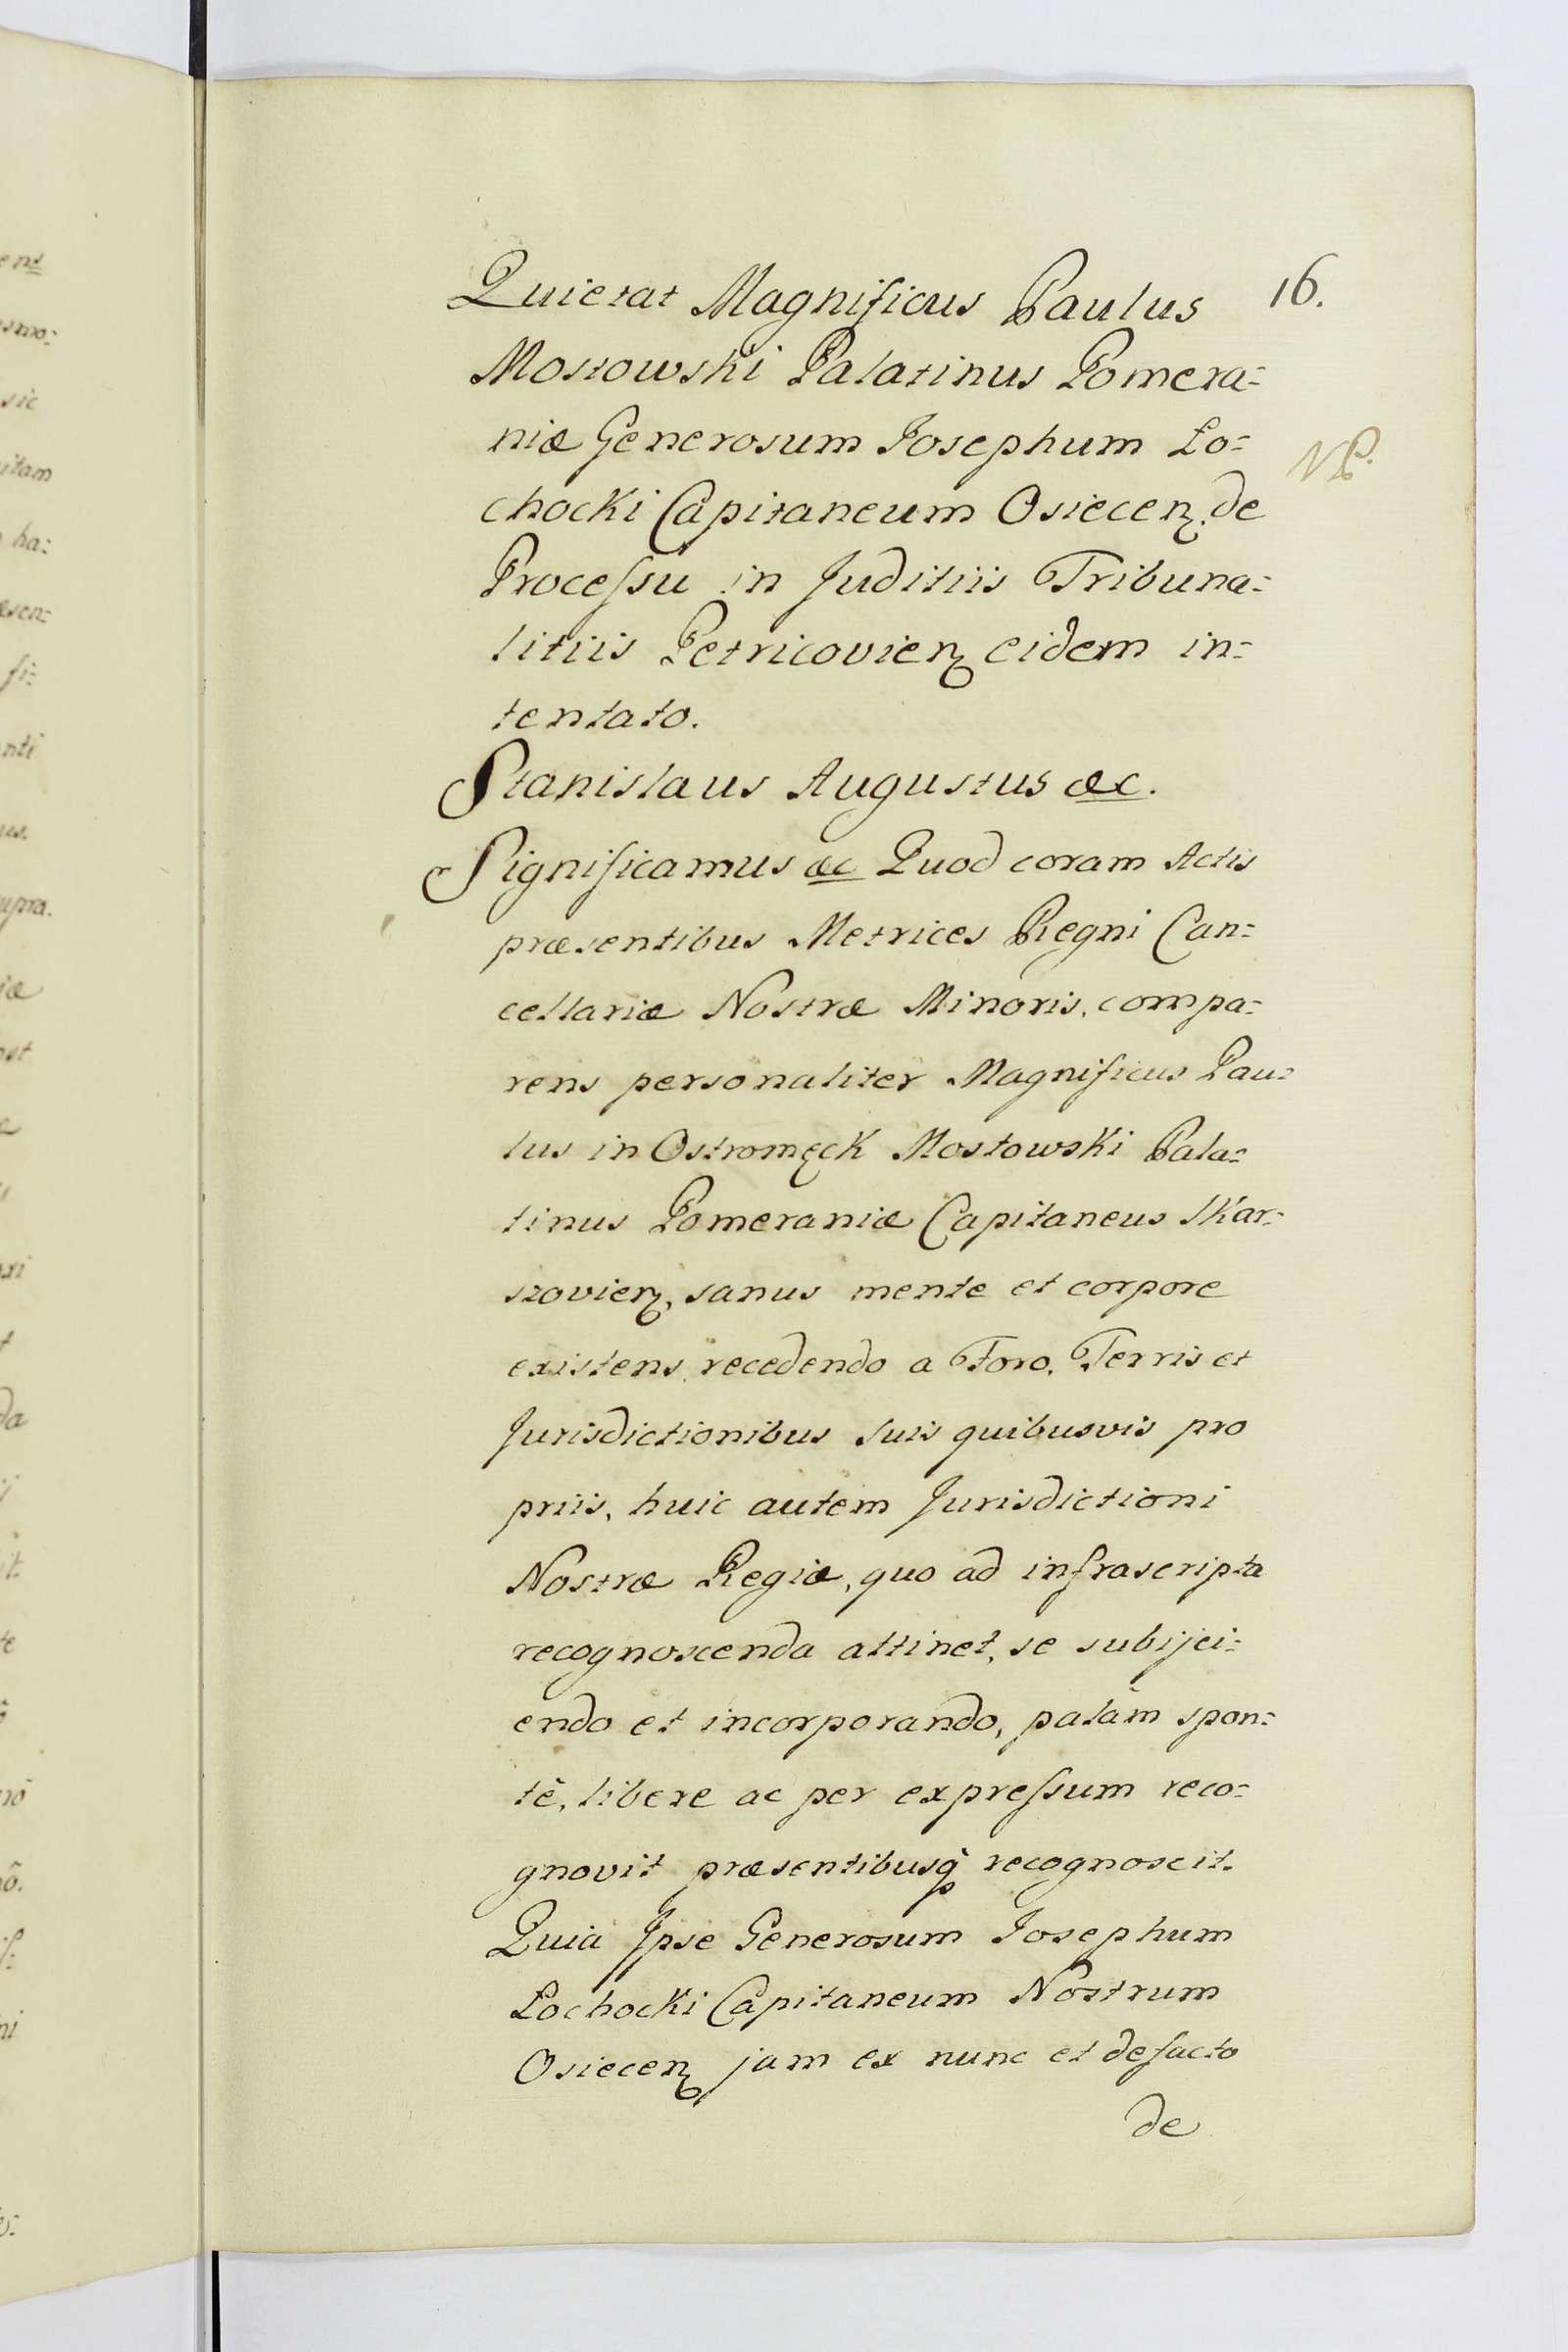 Quietat Magnificus Paulus 16.
Mostowski Palatinus Pomera=
niæ Generosum Josephum Lo= NP.
chocki Capitaneum Osiecen̄. de
Processu in Juditiis Tribuna=
litiis Petricovien̄ eidem in=
tentato.
Stanislaus Augustus &c.
Significamus &c Quod coram Actis
præsentibus Metrices Regni Can=
cellariæ Nostræ Minoris, compa=
rens personaliter Magnificus Pau=
lus in Ostromęck Mostowski Pala=
tinus Pomeraniæ Capitaneus Skar=
szovien̄, sanus mente et corpore
existens, recedendo a Foro, Terris et
Jurisdictionibus suis quibusvis pro
priis, huic autem Jurisdictioni
Nostræ Regiæ, quo ad infrascripta
recognoscenda attinet, se subijci=
endo et incorporando, palàm spon=
tè, libere ac per expressum reco=
gnovit præsentibusq̀ recognoscit.
Quia Ipse Generosum Josephum
Lochocki Capitaneum Nostrum
Osiecen̄ jam ex nunc et defacto
de